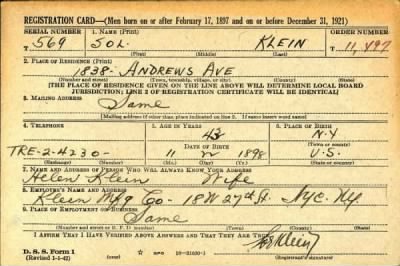 REGISTRATION CARD—(Men born on or after February 17, 1897 and on or before December 31, 1921)
SERIAL NUMBER 1. NAME (Print) ORDER NUMBER
T 569 SOL. KLEIN T 11,497
(First) (Middle) (Last)
2. PLACE OF RESIDENCE (Print)
1838- ANDREWS AVE
(Number and street) (Town, township, village, or city) (County) (State)
[THE PLACE OF RESIDENCE GIVEN ON THE LINE ABOVE WILL DETERMINE LOCAL BOARD
JURISDICTION; LINE 2 OF REGISTRATION CERTIFICATE WILL BE IDENTICAL]
3. MAILING ADDRESS
Same
[Mailing address if other than place indicated on line 2. If same insert word same]
4. TELEPHONE 5. AGE IN YEARS 6. PLACE OF BIRTH
43 N.Y
DATE OF BIRTH
TRE-2-4230- 11 1898 U.S.
(Exchange) (Number) (Mo.) (Day) (Yr.) (State or country)
7. NAME AND ADDRESS OF PERSON WHO WILL ALWAYS KNOW YOUR ADDRESS
Helen Klein Wife
8. EMPLOYER'S NAME AND ADDRESS
Klein Mfg Co- 18 W 27th St. Nyc. Ny.
9. PLACE OF EMPLOYMENT OR BUSINESS
Same
(Number and street or R. F. D. number) (Town) (County) (State)
I AFFIRM THAT I HAVE VERIFIED ABOVE ANSWERS AND THAT THEY ARE TRUE.
D. S. S. Form 1 Sol Klein
(Revised 1-1-42) GPO 16-21630-1 (Registrant's signature)